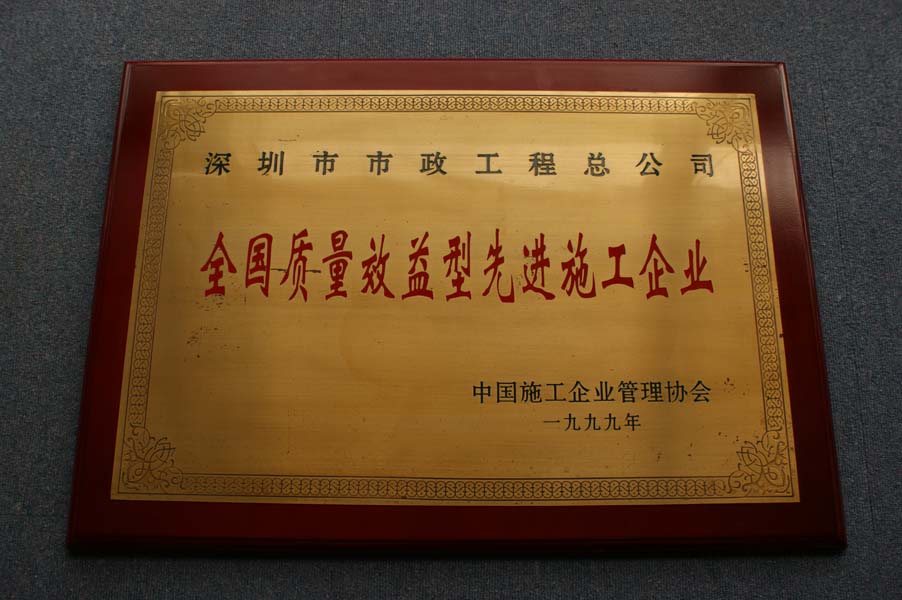 深圳市市政工程总公司
全国质量效益型先进施工企业
中国施工企业管理协会
一九九九年